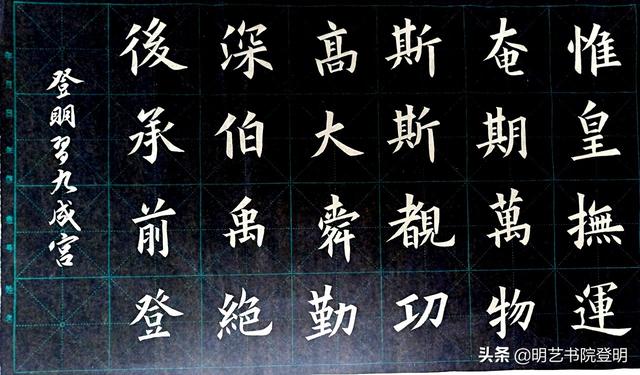 惟皇撫運
奄期萬物
斯斯覩功
髙大舜勤
深伯禹絶
後承前登
登眀習九成宮
头条 @明艺书院登明